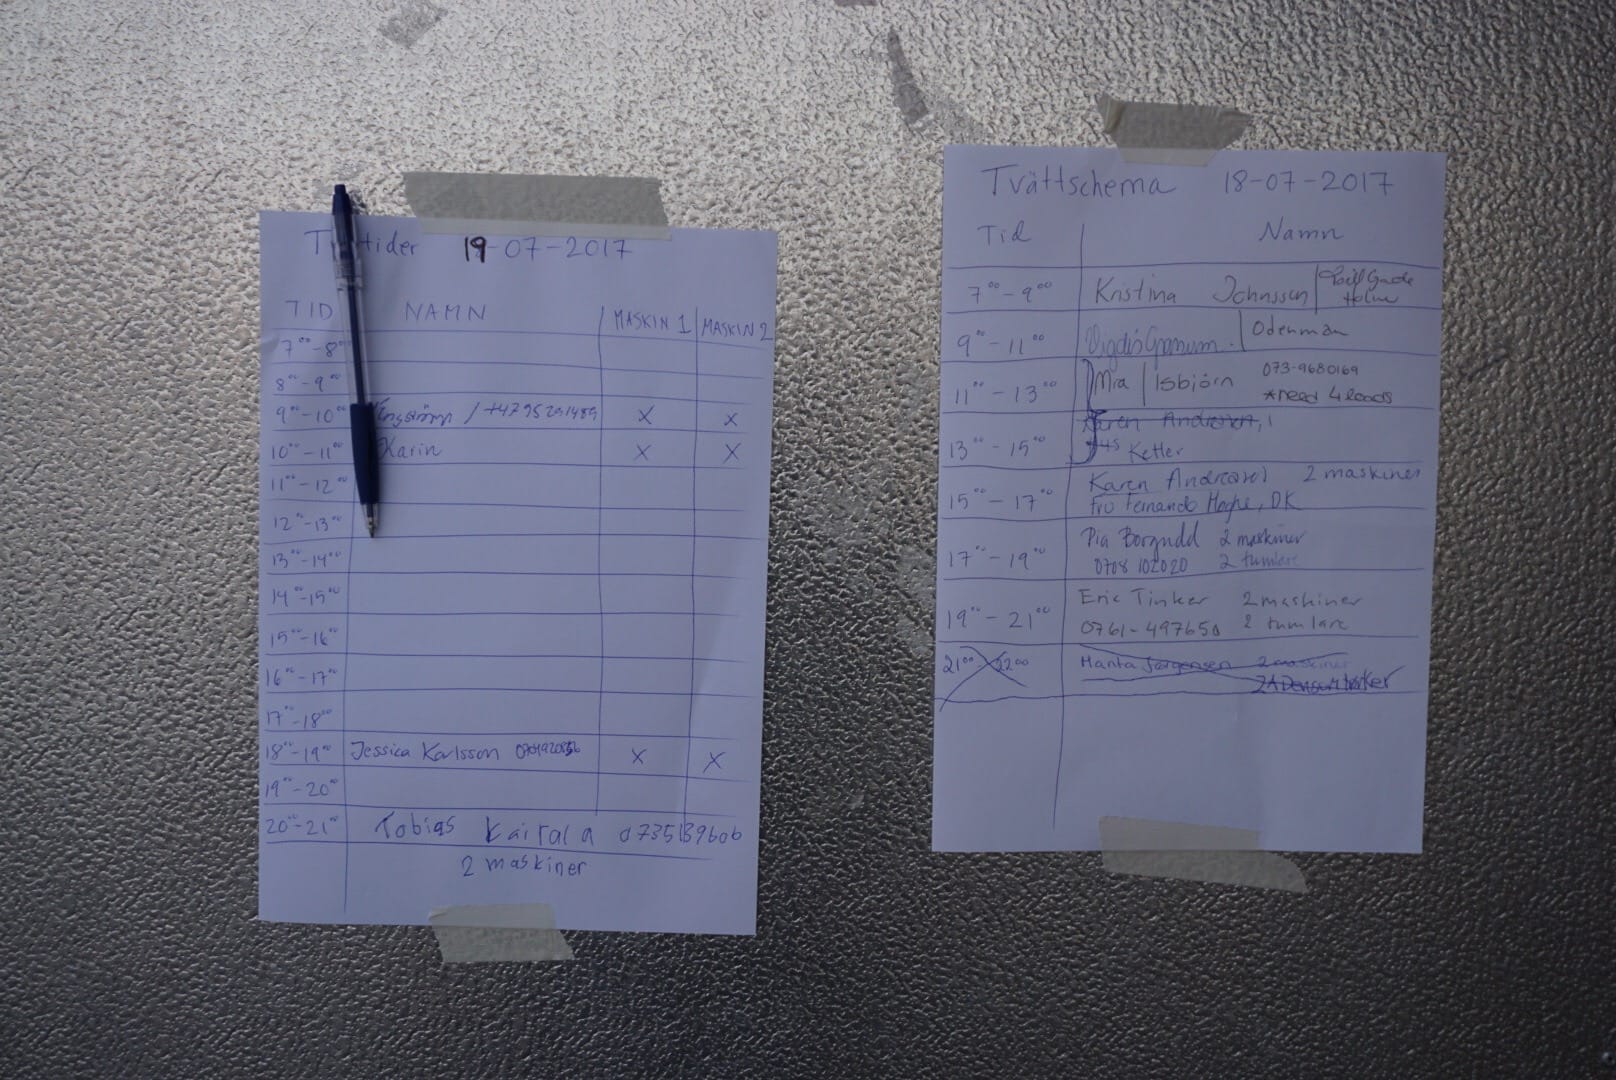 tider 19-07-2017
TID NAMN MASKIN 1 MASKIN 2
7⁰⁰-8⁰⁰
8⁰⁰-9⁰⁰
9⁰⁰-10⁰⁰ / X X
10⁰⁰-11⁰⁰ Karin X X
11⁰⁰-12⁰⁰
12⁰⁰-13⁰⁰
13⁰⁰-14⁰⁰
14⁰⁰-15⁰⁰
15⁰⁰-16⁰⁰
16⁰⁰-17⁰⁰
17⁰⁰-18⁰⁰
18⁰⁰-19⁰⁰ Jessica Karlsson X X
19⁰⁰-20⁰⁰
20⁰⁰-21⁰⁰ Tobias Kairala 0735139606
2 maskiner
Tvättschema 18-07-2017
Tid Namn
7⁰⁰-9⁰⁰ Kristina Johnsson
Holm
9⁰⁰-11⁰⁰ Vigdis Granum. | Odenman
11⁰⁰-13⁰⁰ Mia | Isbjörn 073-9680169
*need 4 loads
13⁰⁰-15⁰⁰ Ketler
15⁰⁰-17⁰⁰ Karen 2 maskiner
Fru Fernando , DK
17⁰⁰-19⁰⁰ Pia 2 maskiner
0708 102020 2 tumlare
19⁰⁰-21⁰⁰ Eric Tinker 2 maskiner
0761-497650 2 tumlare
21⁰⁰ 22⁰⁰ Hanta Jørgensen 2 maskiner